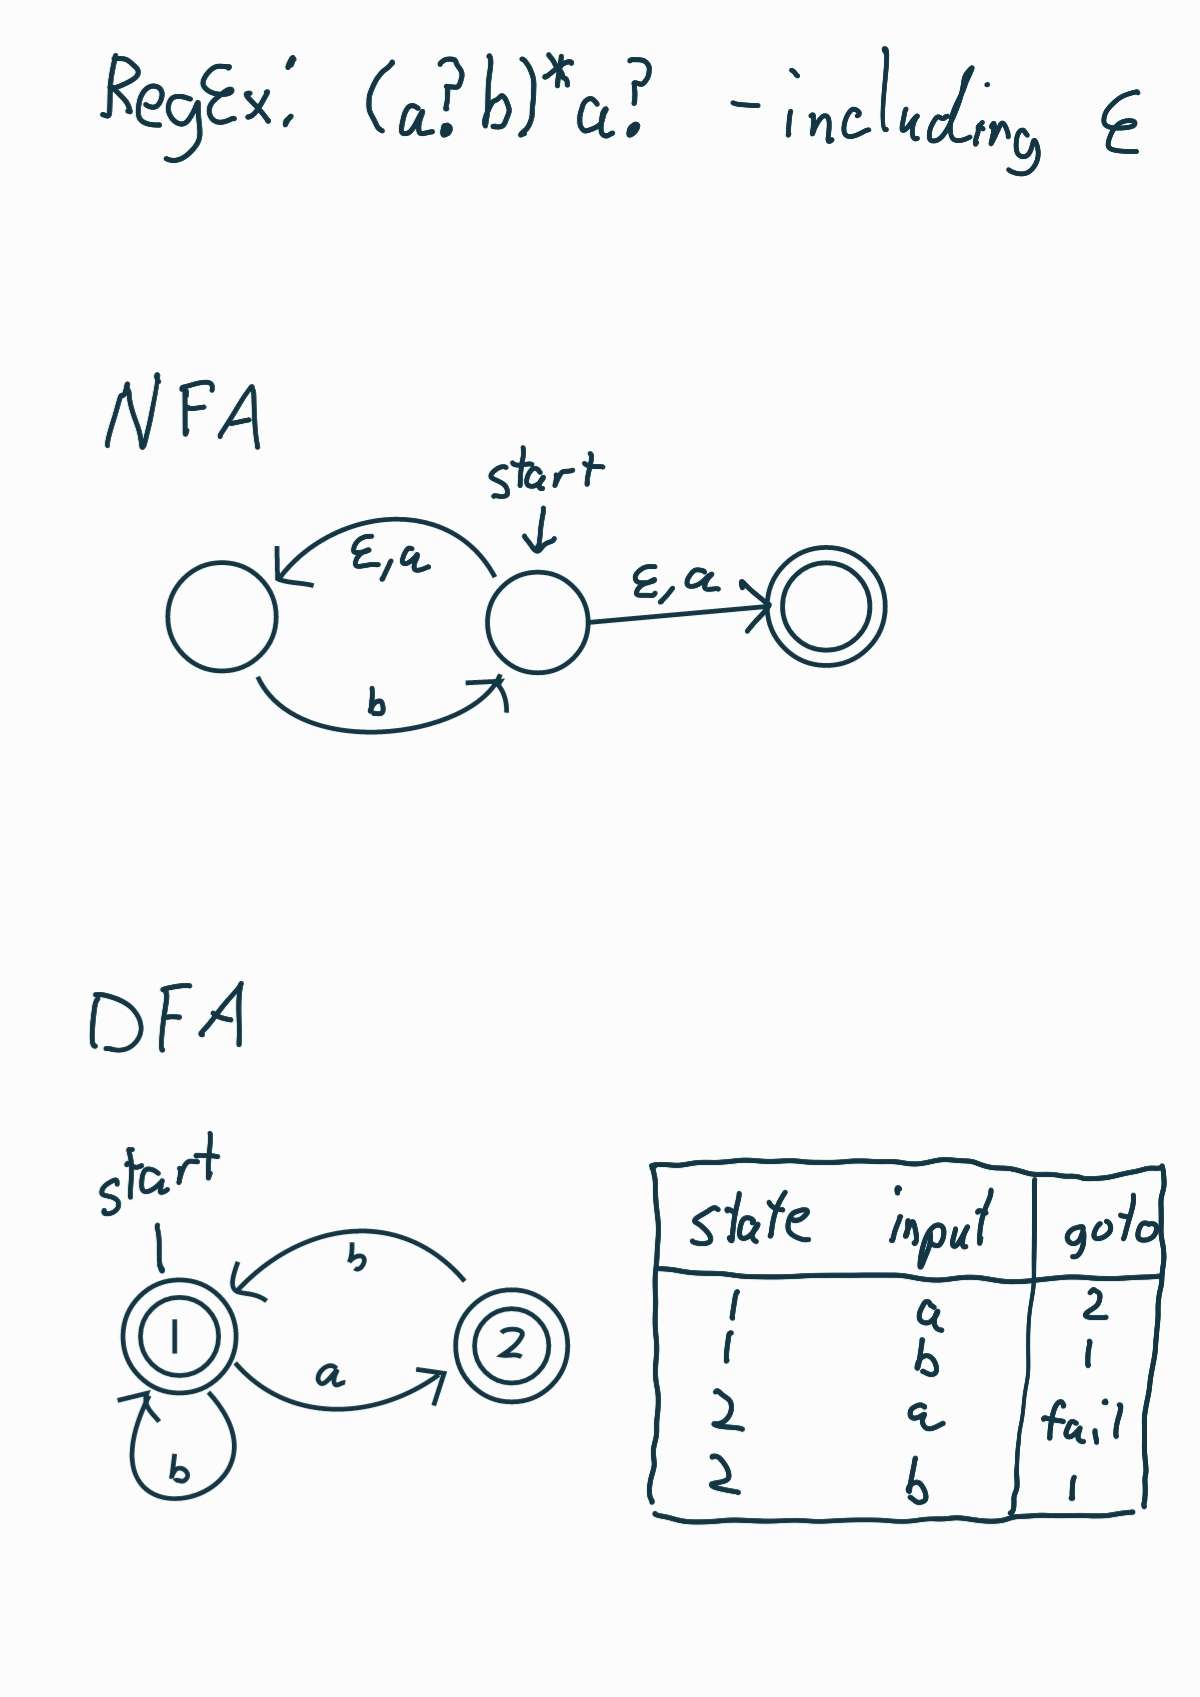 RegEx: (a?b)*a? - including ε
NFA
start
ε,a
ε,a
b
DFA
start
b
1
2
a
b
state input goto
1 a 2
1 b 1
2 a fail
2 b 1